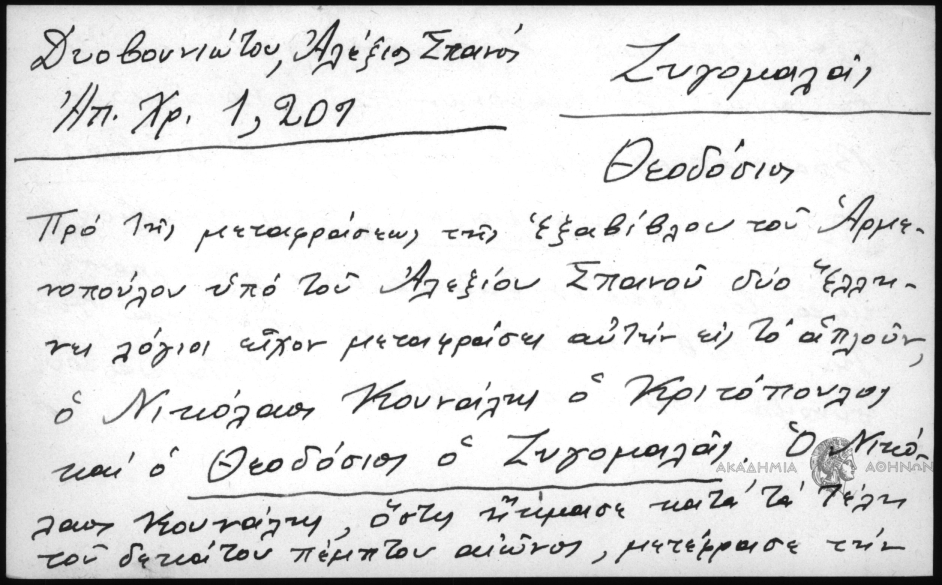 Δυοβουνιώτου, Ἀλέξιος Σπανός
Ἀπ. Χρ. 1, 201
Ζυγομαλᾶς
Θεοδόσιος
Πρό τῆς μεταφράσεως τῆς Ἑξαβίβλου τοῦ Ἁρμε-
νοπούλου ὑπό τοῦ Ἀλεξίου Σπανοῦ δύο Ἕλλη-
νες λόγιοι εἶχον μεταφράσει αὐτήν εἰς τό ἁπλοῦν,
ὁ Νικόλαος Κουνάλης ὁ Κριτόπουλος
καί ὁ Θεοδόσιος ὁ Ζυγομαλᾶς. Ὁ Νικό-
ΑΚΑΔΗΜΙΑ ΑΘΗΝΩΝ
λαος Κουνάλης, ὅστις ἤκμασε κατά τά τέλη
τοῦ δεκάτου πέμπτου αἰῶνος, μετέφρασε τήν